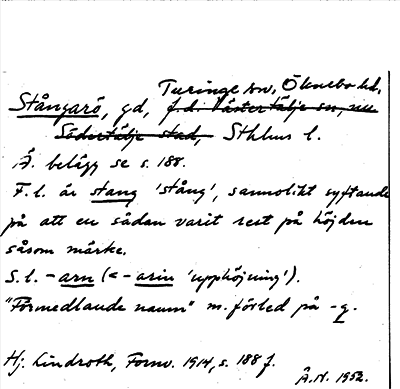 Turinge sn, Öknebo hd,
Stångarö, gd, f.d. Västertälje sn, nu
Södertälje stad, Sthlms l.
Ä. belägg se s. 188.
F.l. är stang 'stång', sannolikt syftande
på att en sådan varit rest på höjden
såsom märke.
S.l. -arn (<-arin 'upphöjning').
"Förmedlande namn" m. förled på -g.
Hj. Lindroth, Fornv. 1914, s. 188 f.
Å.N. 1952.